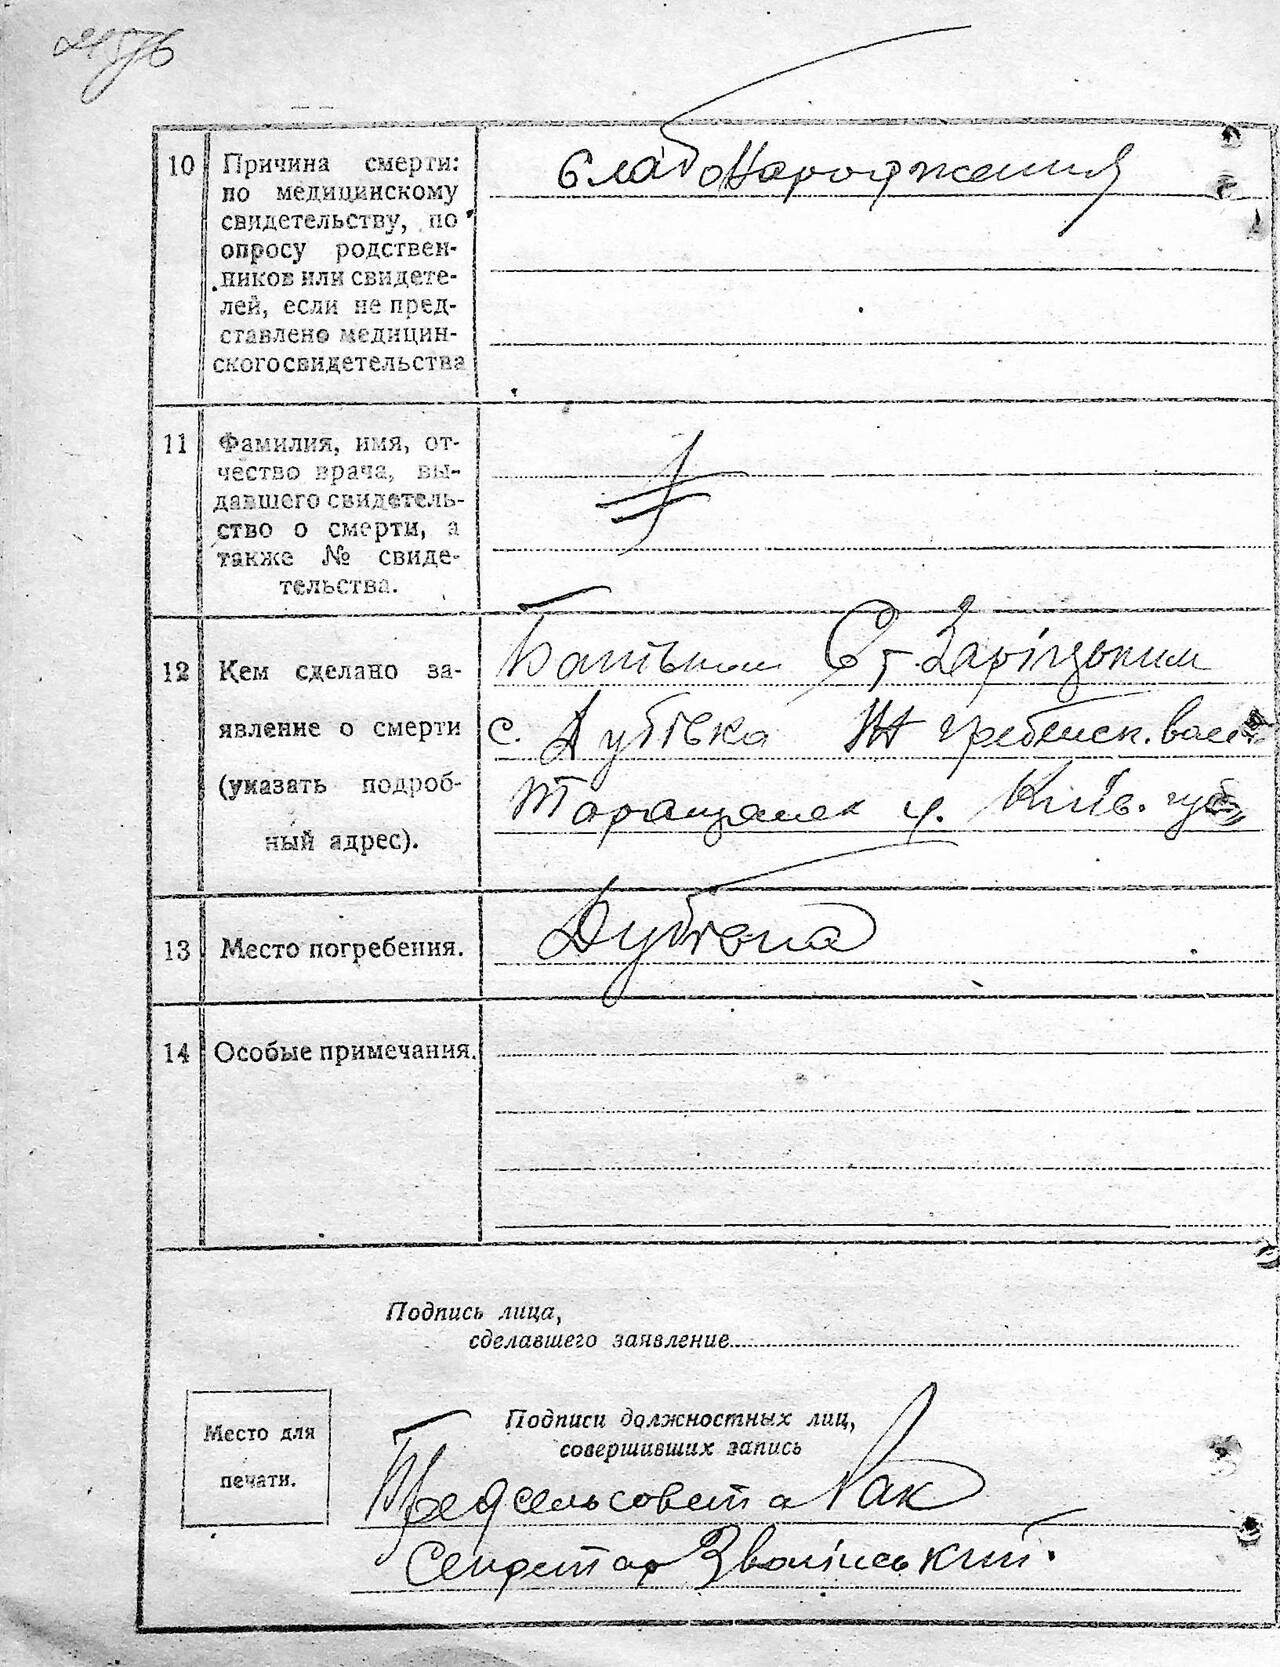 10 Причина смерти:
по медицинскому
свидетельству, по
опросу родствен-
ников или свидете-
лей, если не пред-
ставлено медицин-
ского свидетельства
слабонарождения
11 Фамилия, имя, от-
чество врача, вы-
давшего свидетель-
ство о смерти, а
также № свиде-
тельства.
12 Кем сделано за-
явление о смерти
(указать подроб-
ный адрес).
Батьком Ст. Заріцьким
с. Дубівка гребенск. вол.
Таращанск Київ. губ.
13 Место погребения.
Дубівка
14 Особые примечания.
Подпись лица,
сделавшего заявление
Место для
печати.
Подписи должностных лиц,
совершивших запись
Предсельсовета Гак
Секретар Звалінський.